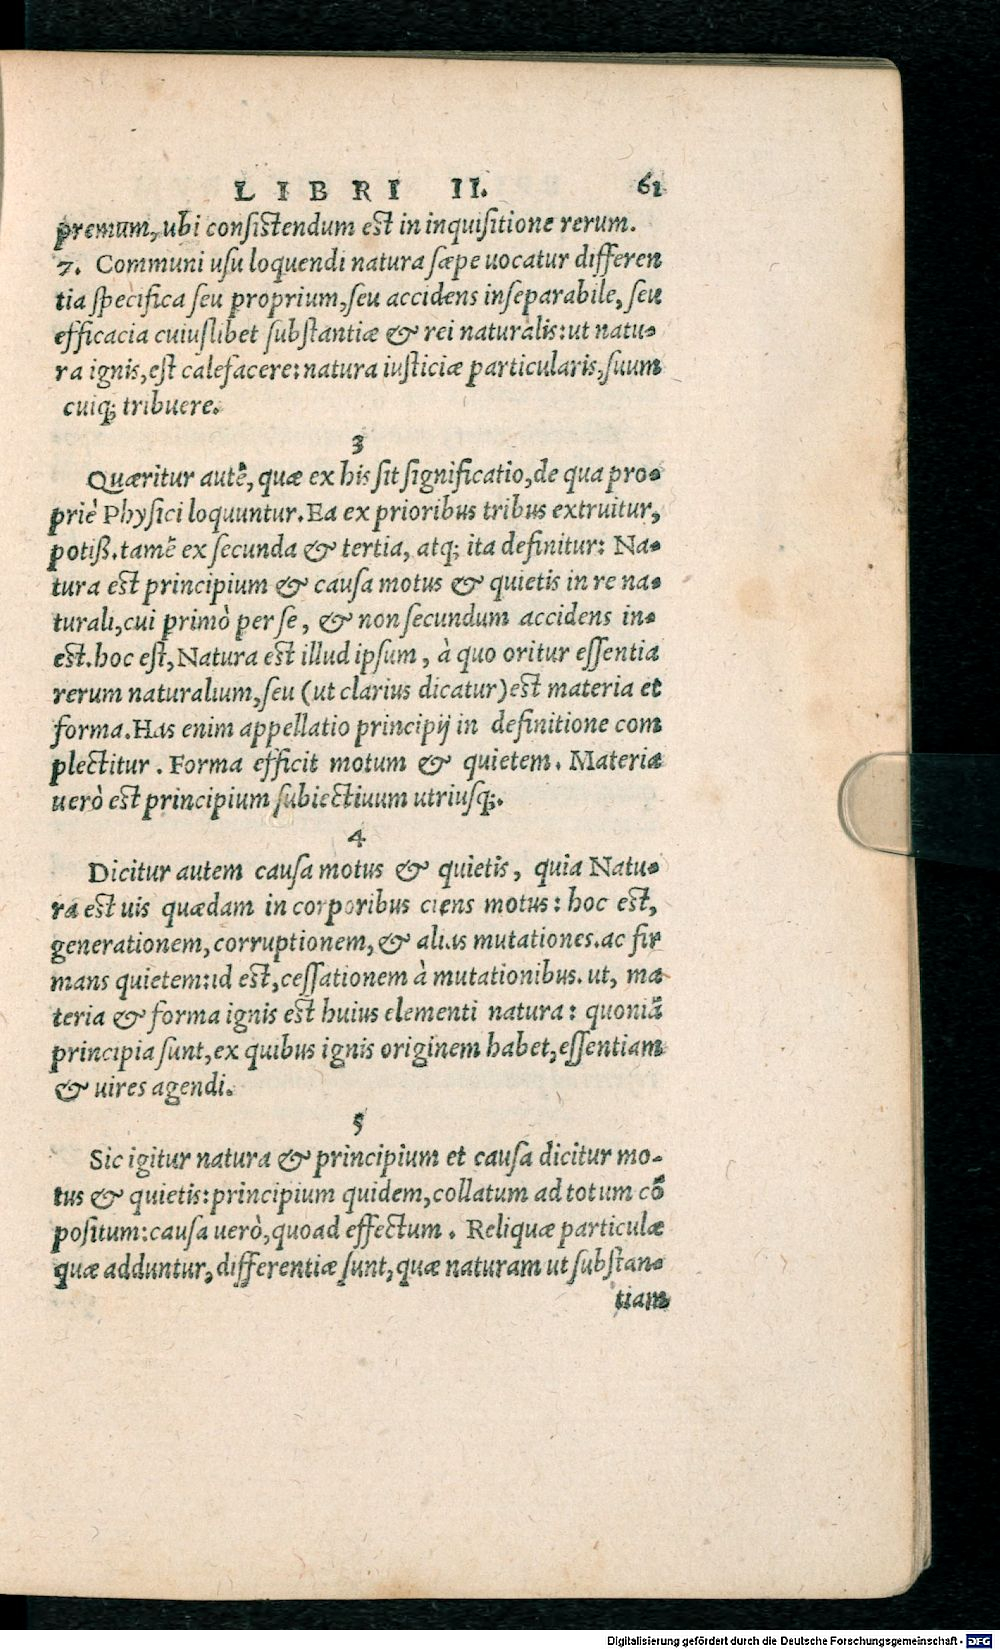 LIBRI II. 61
premum, ubi consistendum est in inquisitione rerum.
7. Communi usu loquendi natura sæpe uocatur differen
tia specifica seu proprium, seu accidens inseparabile, seu
efficacia cuiuslibet substantiæ & rei naturalis: ut natu-
ra ignis, est calefacere: natura iusticiæ particularis, suum
cuiq; tribuere.
3
Quæritur autē, quæ ex his sit significatio, de qua pro-
priè Physici loquuntur. Ea ex prioribus tribus extruitur,
potiß. tamē ex secunda & tertia, atq; ita definitur: Na-
tura est principium & causa motus & quietis in re na-
turali, cui primò per se, & non secundum accidens in-
est. hoc est, Natura est illud ipsum, à quo oritur essentia
rerum naturalium, seu (ut clarius dicatur) est materia et
forma. Has enim appellatio principij in definitione com
plectitur. Forma efficit motum & quietem. Materia
uerò est principium subiectiuum utriusq;.
4
Dicitur autem causa motus & quietis, quia Natu-
ra est uis quædam in corporibus ciens motus: hoc est,
generationem, corruptionem, & alias mutationes. ac fir
mans quietem: id est, cessationem à mutationibus. ut, ma
teria & forma ignis est huius elementi natura: quoniā
principia sunt, ex quibus ignis originem habet, essentiam
& uires agendi.
5
Sic igitur natura & principium et causa dicitur mo-
tus & quietis: principium quidem, collatum ad totum cō
positum: causa uerò, quoad effectum. Reliquæ particulæ
quæ adduntur, differentiæ sunt, quæ naturam ut substan-
tiam
Digitalisierung gefördert durch die Deutsche Forschungsgemeinschaft - DFG